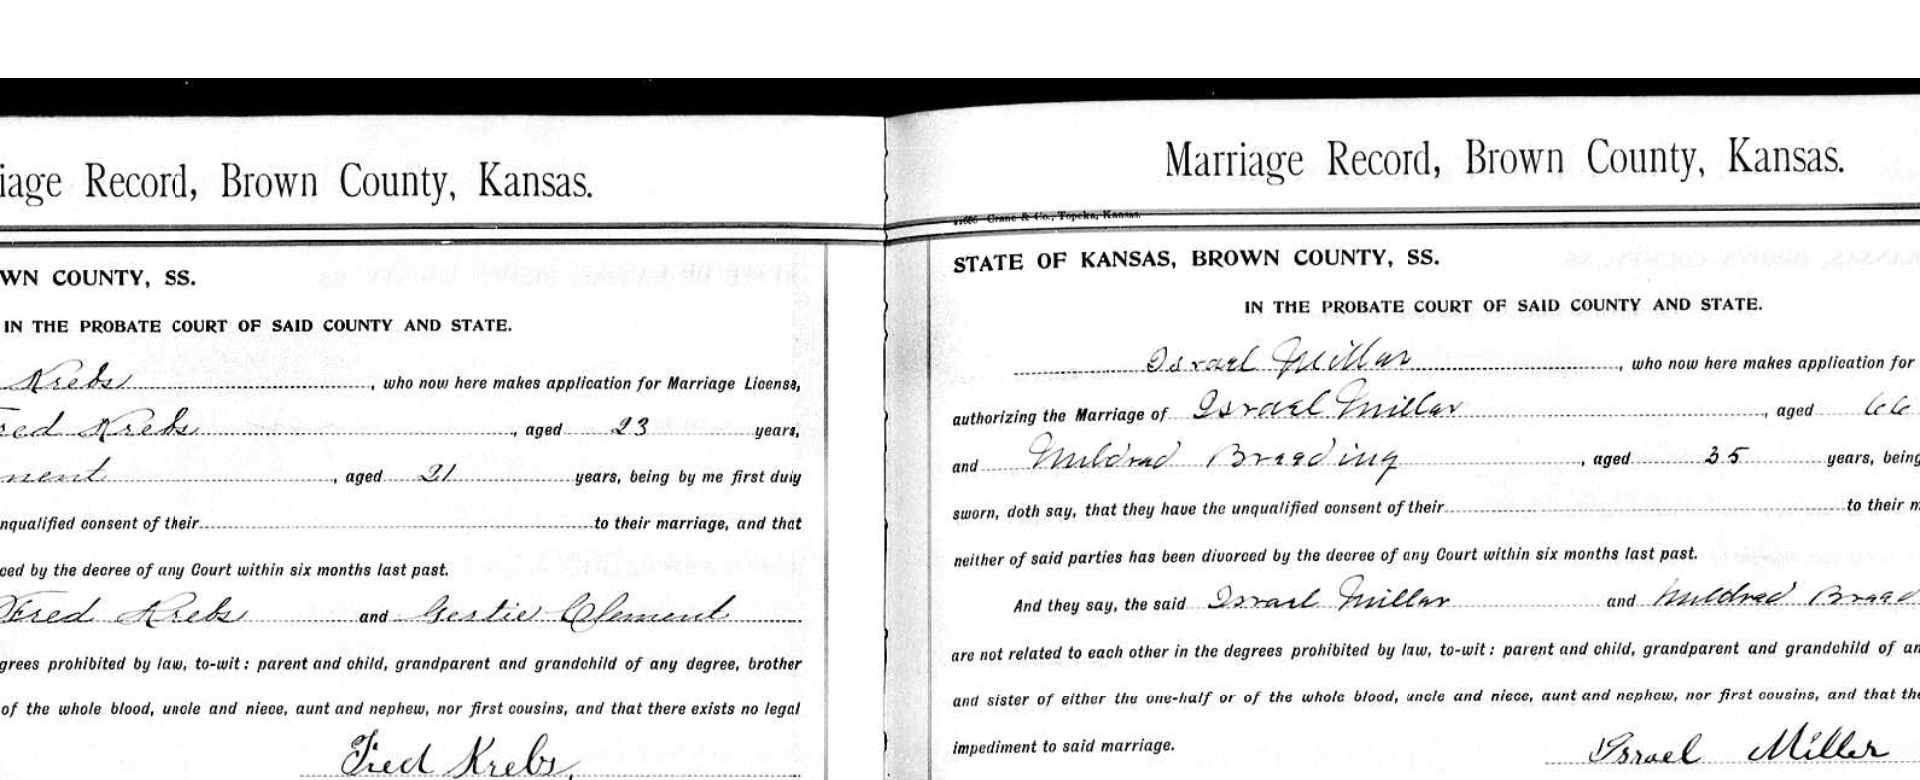 iage Record, Brown County, Kansas.
WN COUNTY, SS.
IN THE PROBATE COURT OF SAID COUNTY AND STATE.
Krebs, who now here makes application for Marriage License,
red Krebs, aged 23 years,
ment, aged 21 years, being by me first duly
nqualified consent of their to their marriage, and that
ced by the decree of any Court within six months last past.
Fred Krebs and Gertie Clement
grees prohibited by law, to-wit: parent and child, grandparent and grandchild of any degree, brother
of the whole blood, uncle and niece, aunt and nephew, nor first cousins, and that there exists no legal
Fred Krebs,
Marriage Record, Brown County, Kansas.
Crane & Co., Topeka, Kansas.
STATE OF KANSAS, BROWN COUNTY, SS.
IN THE PROBATE COURT OF SAID COUNTY AND STATE.
Israel Miller, who now here makes application for
authorizing the Marriage of Israel Miller, aged 66
and Mildred Breeding, aged 35 years, being
sworn, doth say, that they have the unqualified consent of their to their m
neither of said parties has been divorced by the decree of any Court within six months last past.
And they say, the said Israel Miller and Mildred Breed
are not related to each other in the degrees prohibited by law, to-wit: parent and child, grandparent and grandchild of an
and sister of either the one-half or of the whole blood, uncle and niece, aunt and nephew, nor first cousins, and that the
impediment to said marriage.
Israel Miller